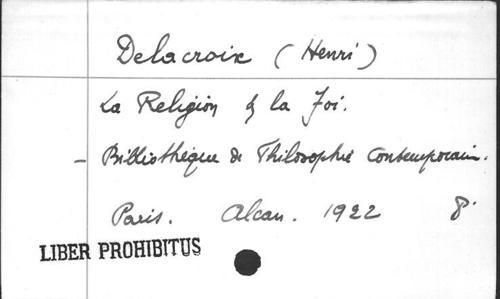 Delacroix (Henri)
La Religion & la Foi.
- Bibliothèque de Philosophie Contemporain.
Paris. Alcan. 1922 8°
LIBER PROHIBITUS